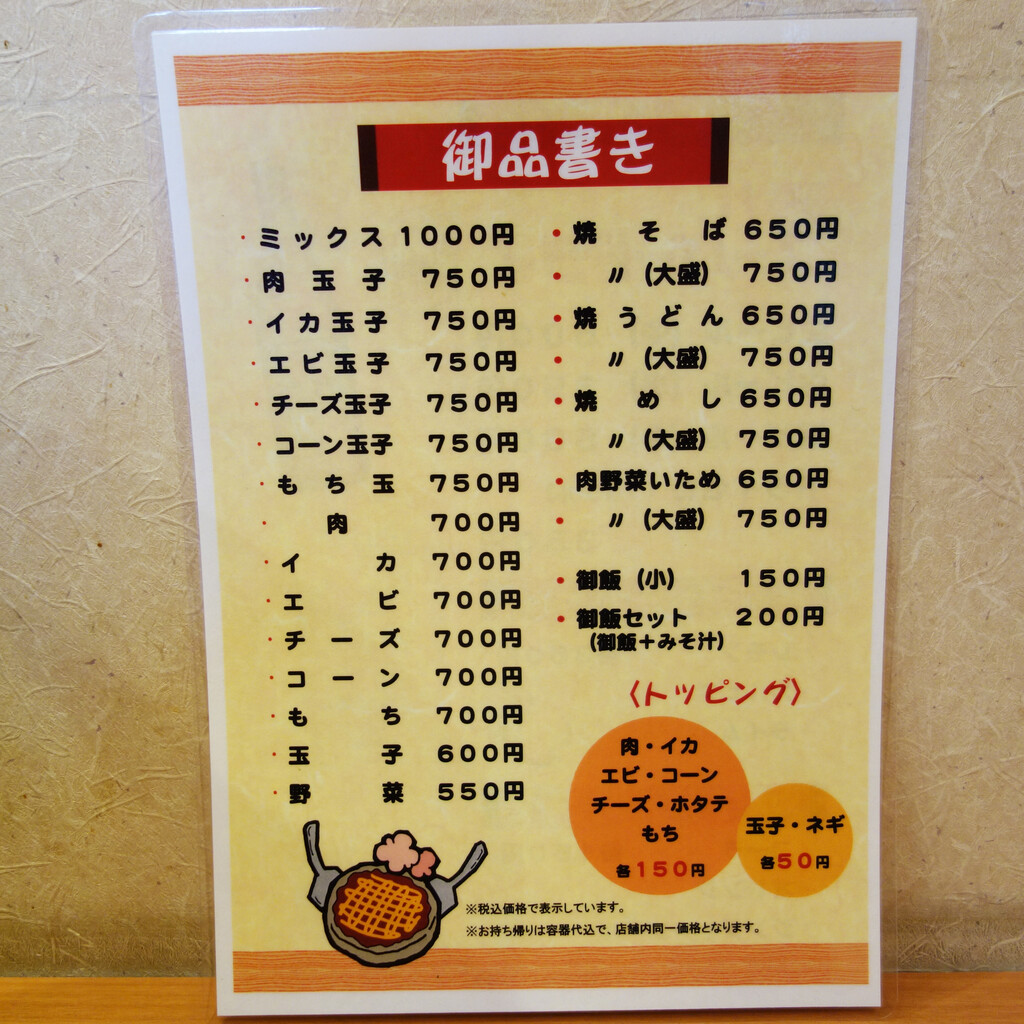 御品書き
・ミックス 1000円
・肉玉子 750円
・イカ玉子 750円
・エビ玉子 750円
・チーズ玉子 750円
・コーン玉子 750円
・もち玉 750円
・肉 700円
・イカ 700円
・エビ 700円
・チーズ 700円
・コーン 700円
・もち 700円
・玉子 600円
・野菜 550円
・焼そば 650円
・〃(大盛) 750円
・焼うどん 650円
・〃(大盛) 750円
・焼めし 650円
・〃(大盛) 750円
・肉野菜いため 650円
・〃(大盛) 750円
・御飯(小) 150円
・御飯セット 200円
(御飯+みそ汁)
〈トッピング〉
肉・イカ
エビ・コーン
チーズ・ホタテ
もち
各150円
玉子・ネギ
各50円
※税込価格で表示しています。
※お持ち帰りは容器代込で、店舗内同一価格となります。